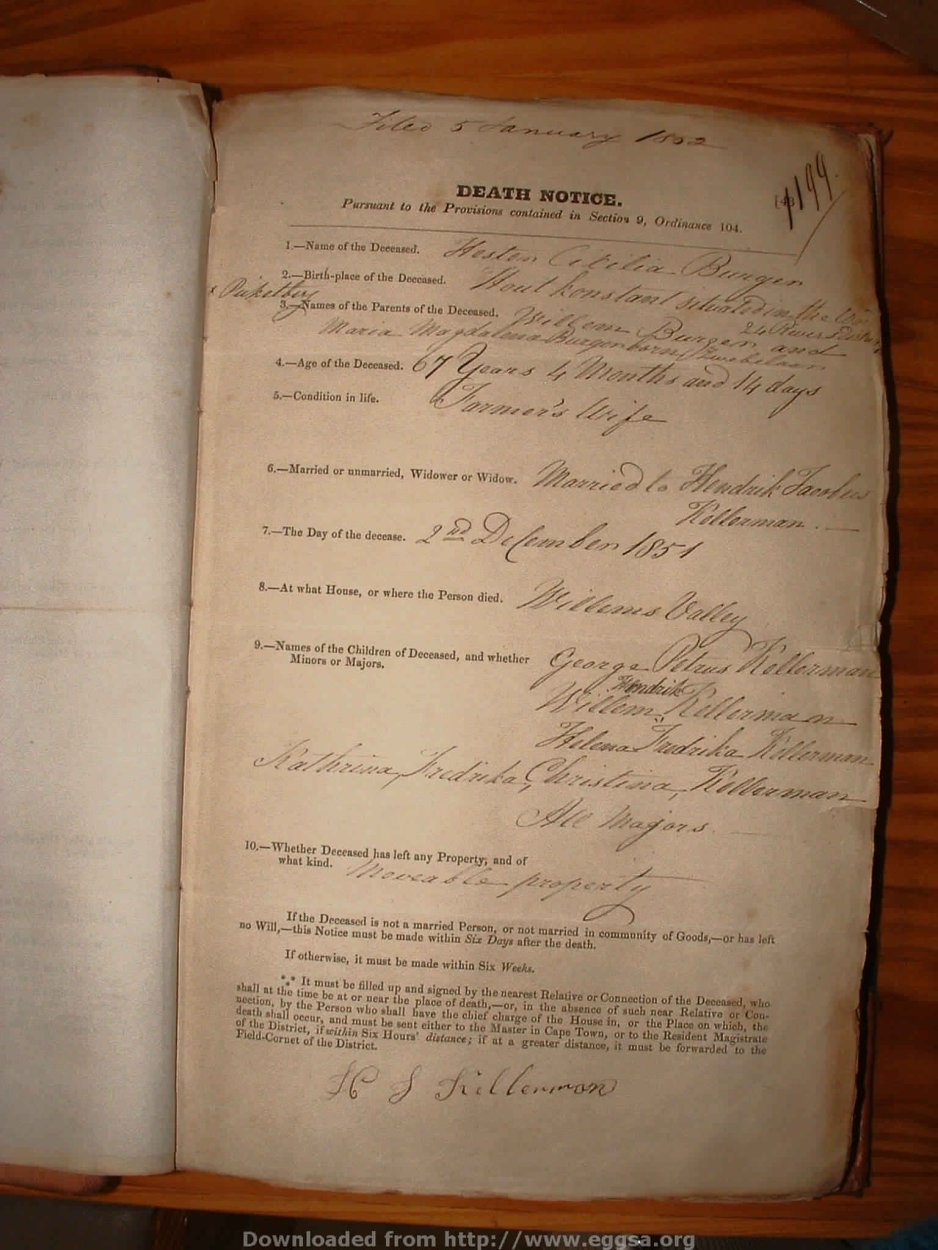 Filed 5 January 1852
DEATH NOTICE.
199
Pursuant to the Provisions contained in Section 9, Ordinance 104.
1.—Name of the Deceased. Hester Cicilia Burger
2.—Birth-place of the Deceased. Hout konstant situated in the
x Piketberg 24 River
3.—Names of the Parents of the Deceased. Willem Burger and
Maria Magdalena Burger born
4.—Age of the Deceased. 67 Years 4 Months and 14 days
5.—Condition in life. Farmer's Wife
6.—Married or unmarried, Widower or Widow. Married to Hendrik Jacobus
Kellerman.
7.—The Day of the decease. 2nd December 1851
8.—At what House, or where the Person died. Willems Valley
9.—Names of the Children of Deceased, and whether George Petrus Kellerman
Minors or Majors.
Hendrik
Willem Kellerman
Helena Fredrika Kellerman
Kathrina, Fredrika, Christina, Kellerman
All Majors.
10.—Whether Deceased has left any Property, and of
what kind. Moveable property
If the Deceased is not a married Person, or not married in community of Goods,—or has left
no Will,—this Notice must be made within Six Days after the death.
If otherwise, it must be made within Six Weeks.
*** It must be filled up and signed by the nearest Relative or Connection of the Deceased, who
shall at the time be at or near the place of death,—or, in the absence of such near Relative or Con-
nection, by the Person who shall have the chief charge of the House in, or the Place on which, the
death shall occur, and must be sent either to the Master in Cape Town, or to the Resident Magistrate
of the District, if within Six Hours' distance; if at a greater distance, it must be forwarded to the
Field-Cornet of the District.
H J Kellerman
Downloaded from http://www.eggsa.org